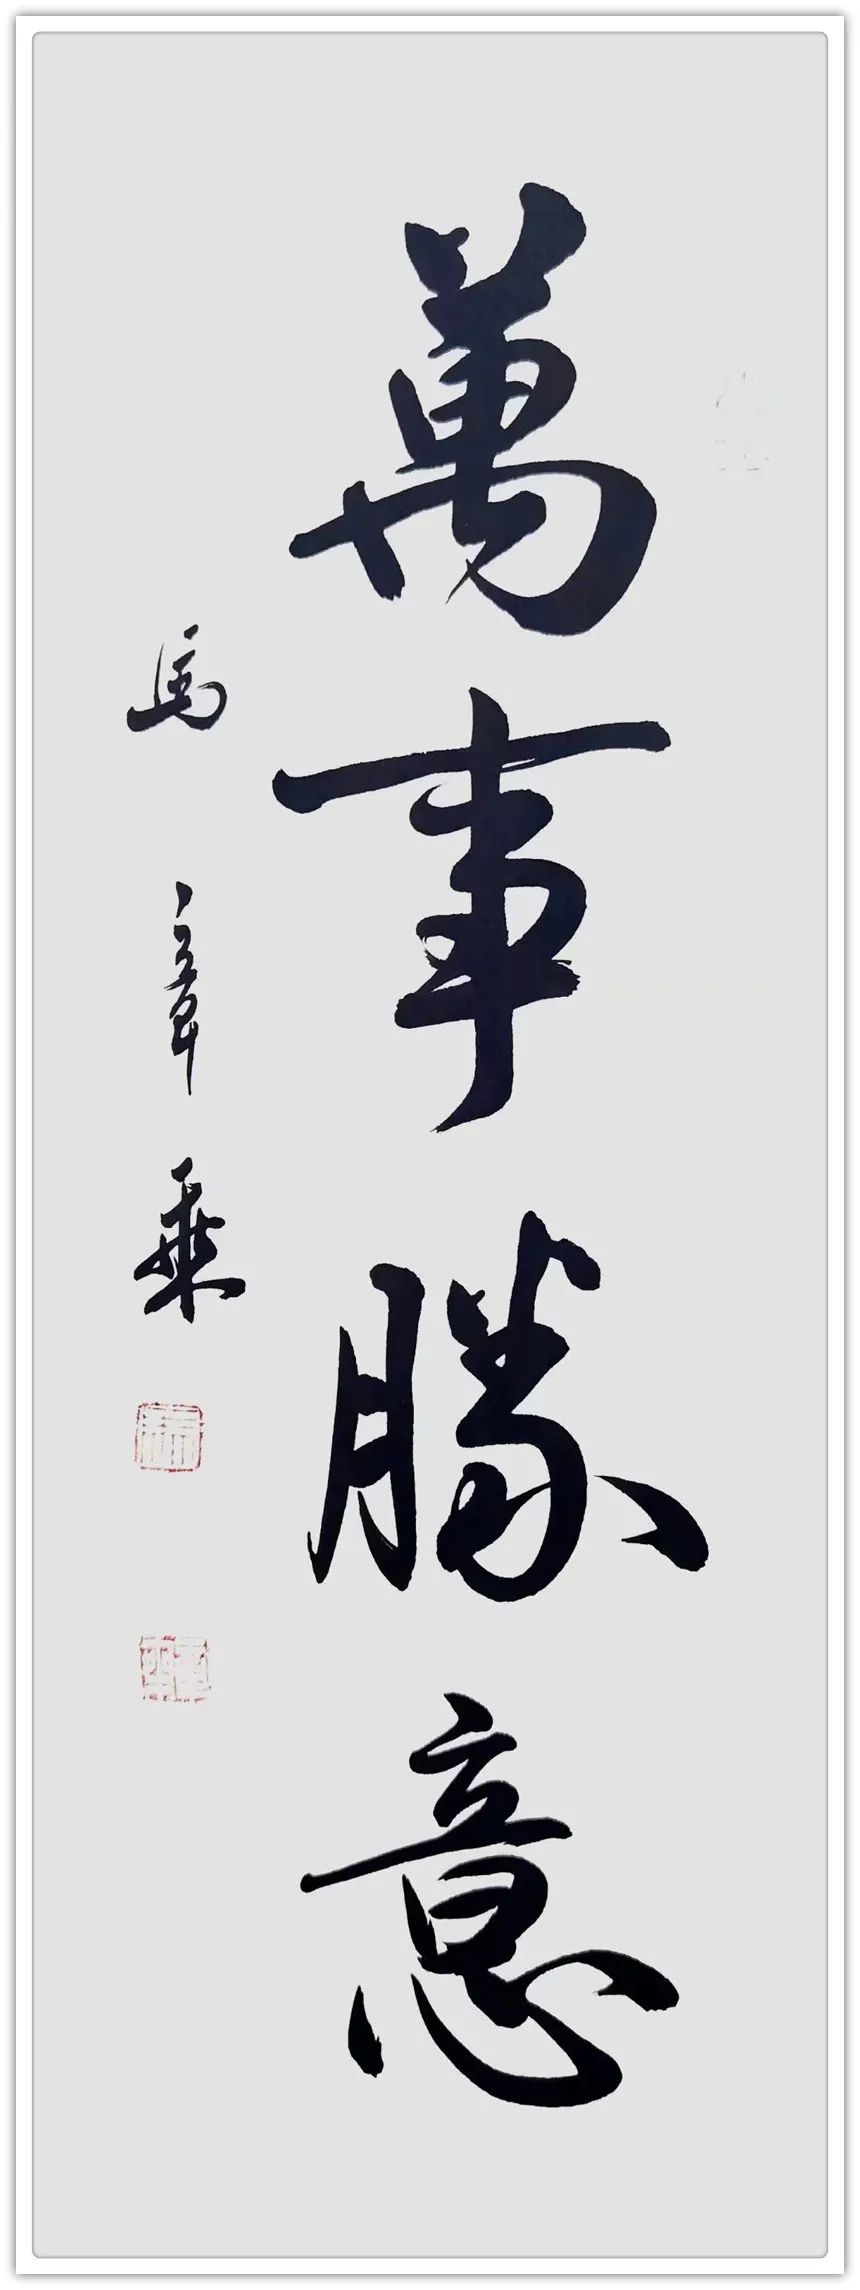 萬事勝意
馬章乘